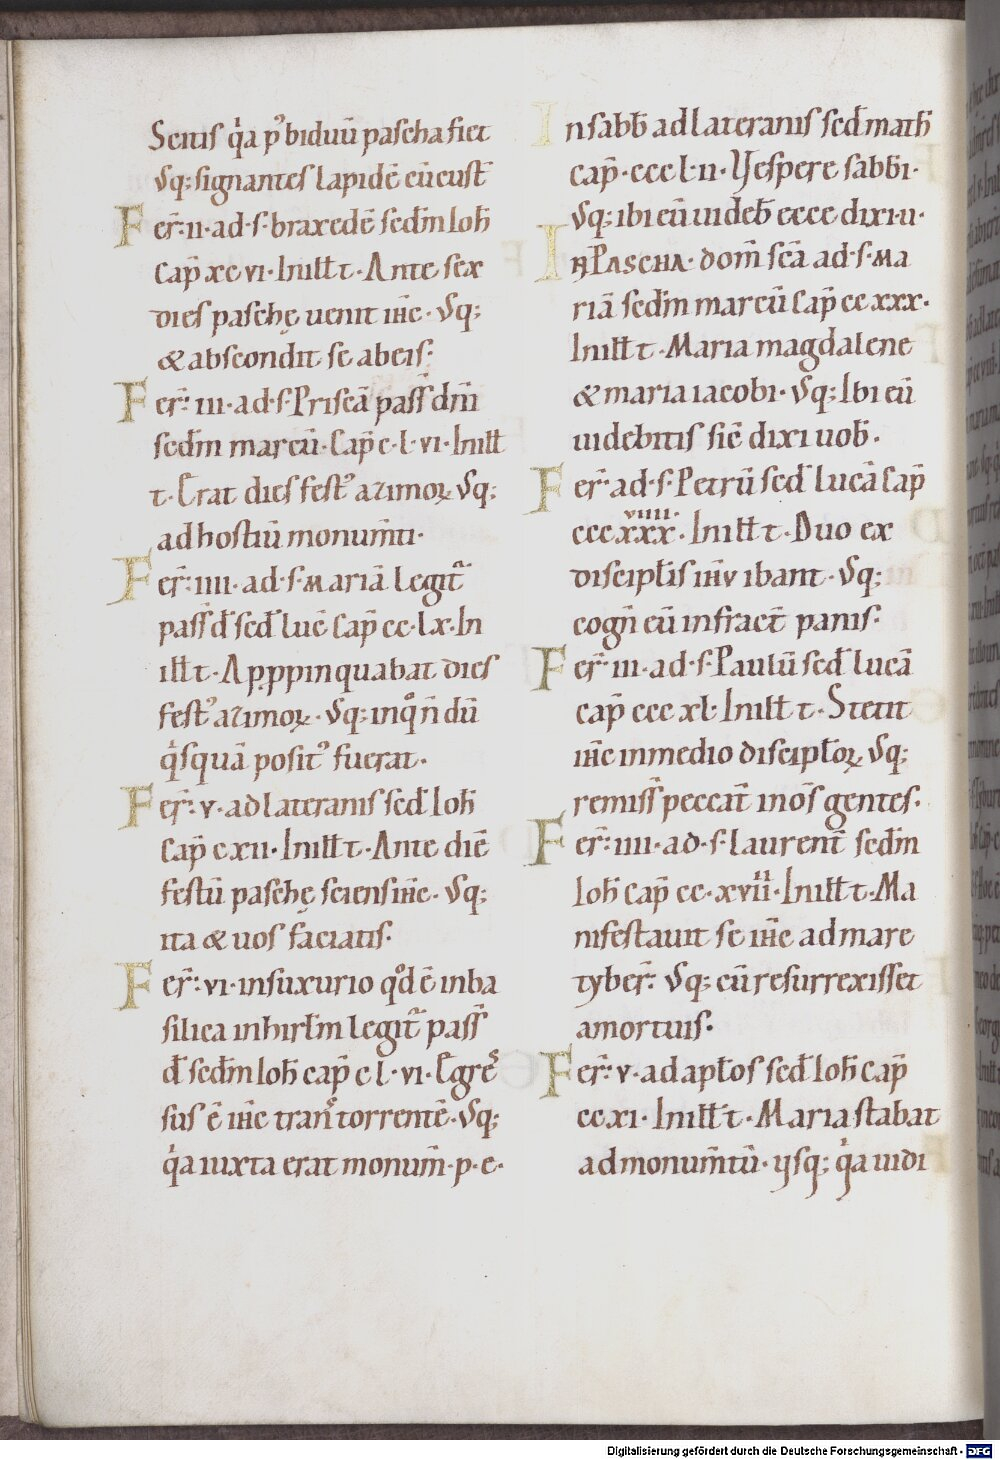 Scitis q̇a p᾽ biduū pascha fiet
Vsq; signantes lapidē cū cust̄
Fer̄. ii. ad. s. braxedē sed̄m Ioh̄
Cap̄ xcvi. Init̄t t. Ante sex
dies paschę uenit ih̄c. Vsq;
& abscondit se ab eis.
Fer̄. iii. ad. s. Priscā pass̄ dn̄i
sed̄m marcū. Cap̄ c. l. vi. Init̄t
t. Erat dies fest᾽ azimoꝝ Vsq;
ad hostiū monum̄ti.
Fer̄. iiii. ad. s. Mariā Legit᷑
pass̄ d̄ sed̄ luc̄ Cap̄ cc. lx. In
it̄t t. Appppinquabat dies
fest᾽ azimoꝝ. Vsq; inq̊ n̄ dū
q̇squā posit᾽ fuerat.
Fer̄. v. ad lateranis sed̄ Ioh̄
Cap̄ cxii. Init̄t t. Ante diē
festū paschę sciens ih̄c. Vsq;
ita & uos faciatis.
Fer̄. vi. in suxurio qd̊ ē in ba
silica in hirl̄m legit᷑ pass̄
d̄ sed̄m Ioh̄ cap̄ cl. vi. Egres̄
sus ē ih̄c trans̄ torrentē. Vsq;
q̇a iuxta erat monum̄. p. e.
In sabb̄ ad lateranis sed̄ math̄
cap̄. ccc l. ii. Vespere sabb̄i.
Vsq; ibi eū uideb̄ ecce dixi u.
IN PASCHA. dom̄ sc̄a ad. s. Ma
riā sed̄m marcū Cap̄ cc xxx.
Init̄t t. Maria magdalene
& maria iacobi. Vsq; Ibi eū
uidebitis sic̄ dixi uob̄.
Fer̄. ad. s. Petrū sed̄ lucā Cap̄
viiii.
ccc xxx. Init̄t t. Duo ex
discipl̄is ih̄u ibant. Vsq;
cogn̄ eū in fract̄ panis.
Fer̄. iii. ad. s. Paulū sed̄ lucā
cap̄ ccc xl. Init̄t t. Stetit
ih̄c in medio discipl̄oꝝ Vsq;
remiss̄ peccat̄ in om̄s gentes.
Fer̄. iiii. ad. s. laurent̄ sed̄m
Ioh̄ cap̄ cc. xvii. Init̄t t. Ma
nifestauit se ih̄c ad mare
tyber̄. Vsq; cū resurrexisset
a mortuis.
Fer̄. v. ad apl̄os sed̄ Ioh̄ cap̄
cc xi. Init̄t t. Maria stabat
ad monum̄tū. Vsq; q̇a uidi
Digitalisierung gefördert durch die Deutsche Forschungsgemeinschaft - DFG